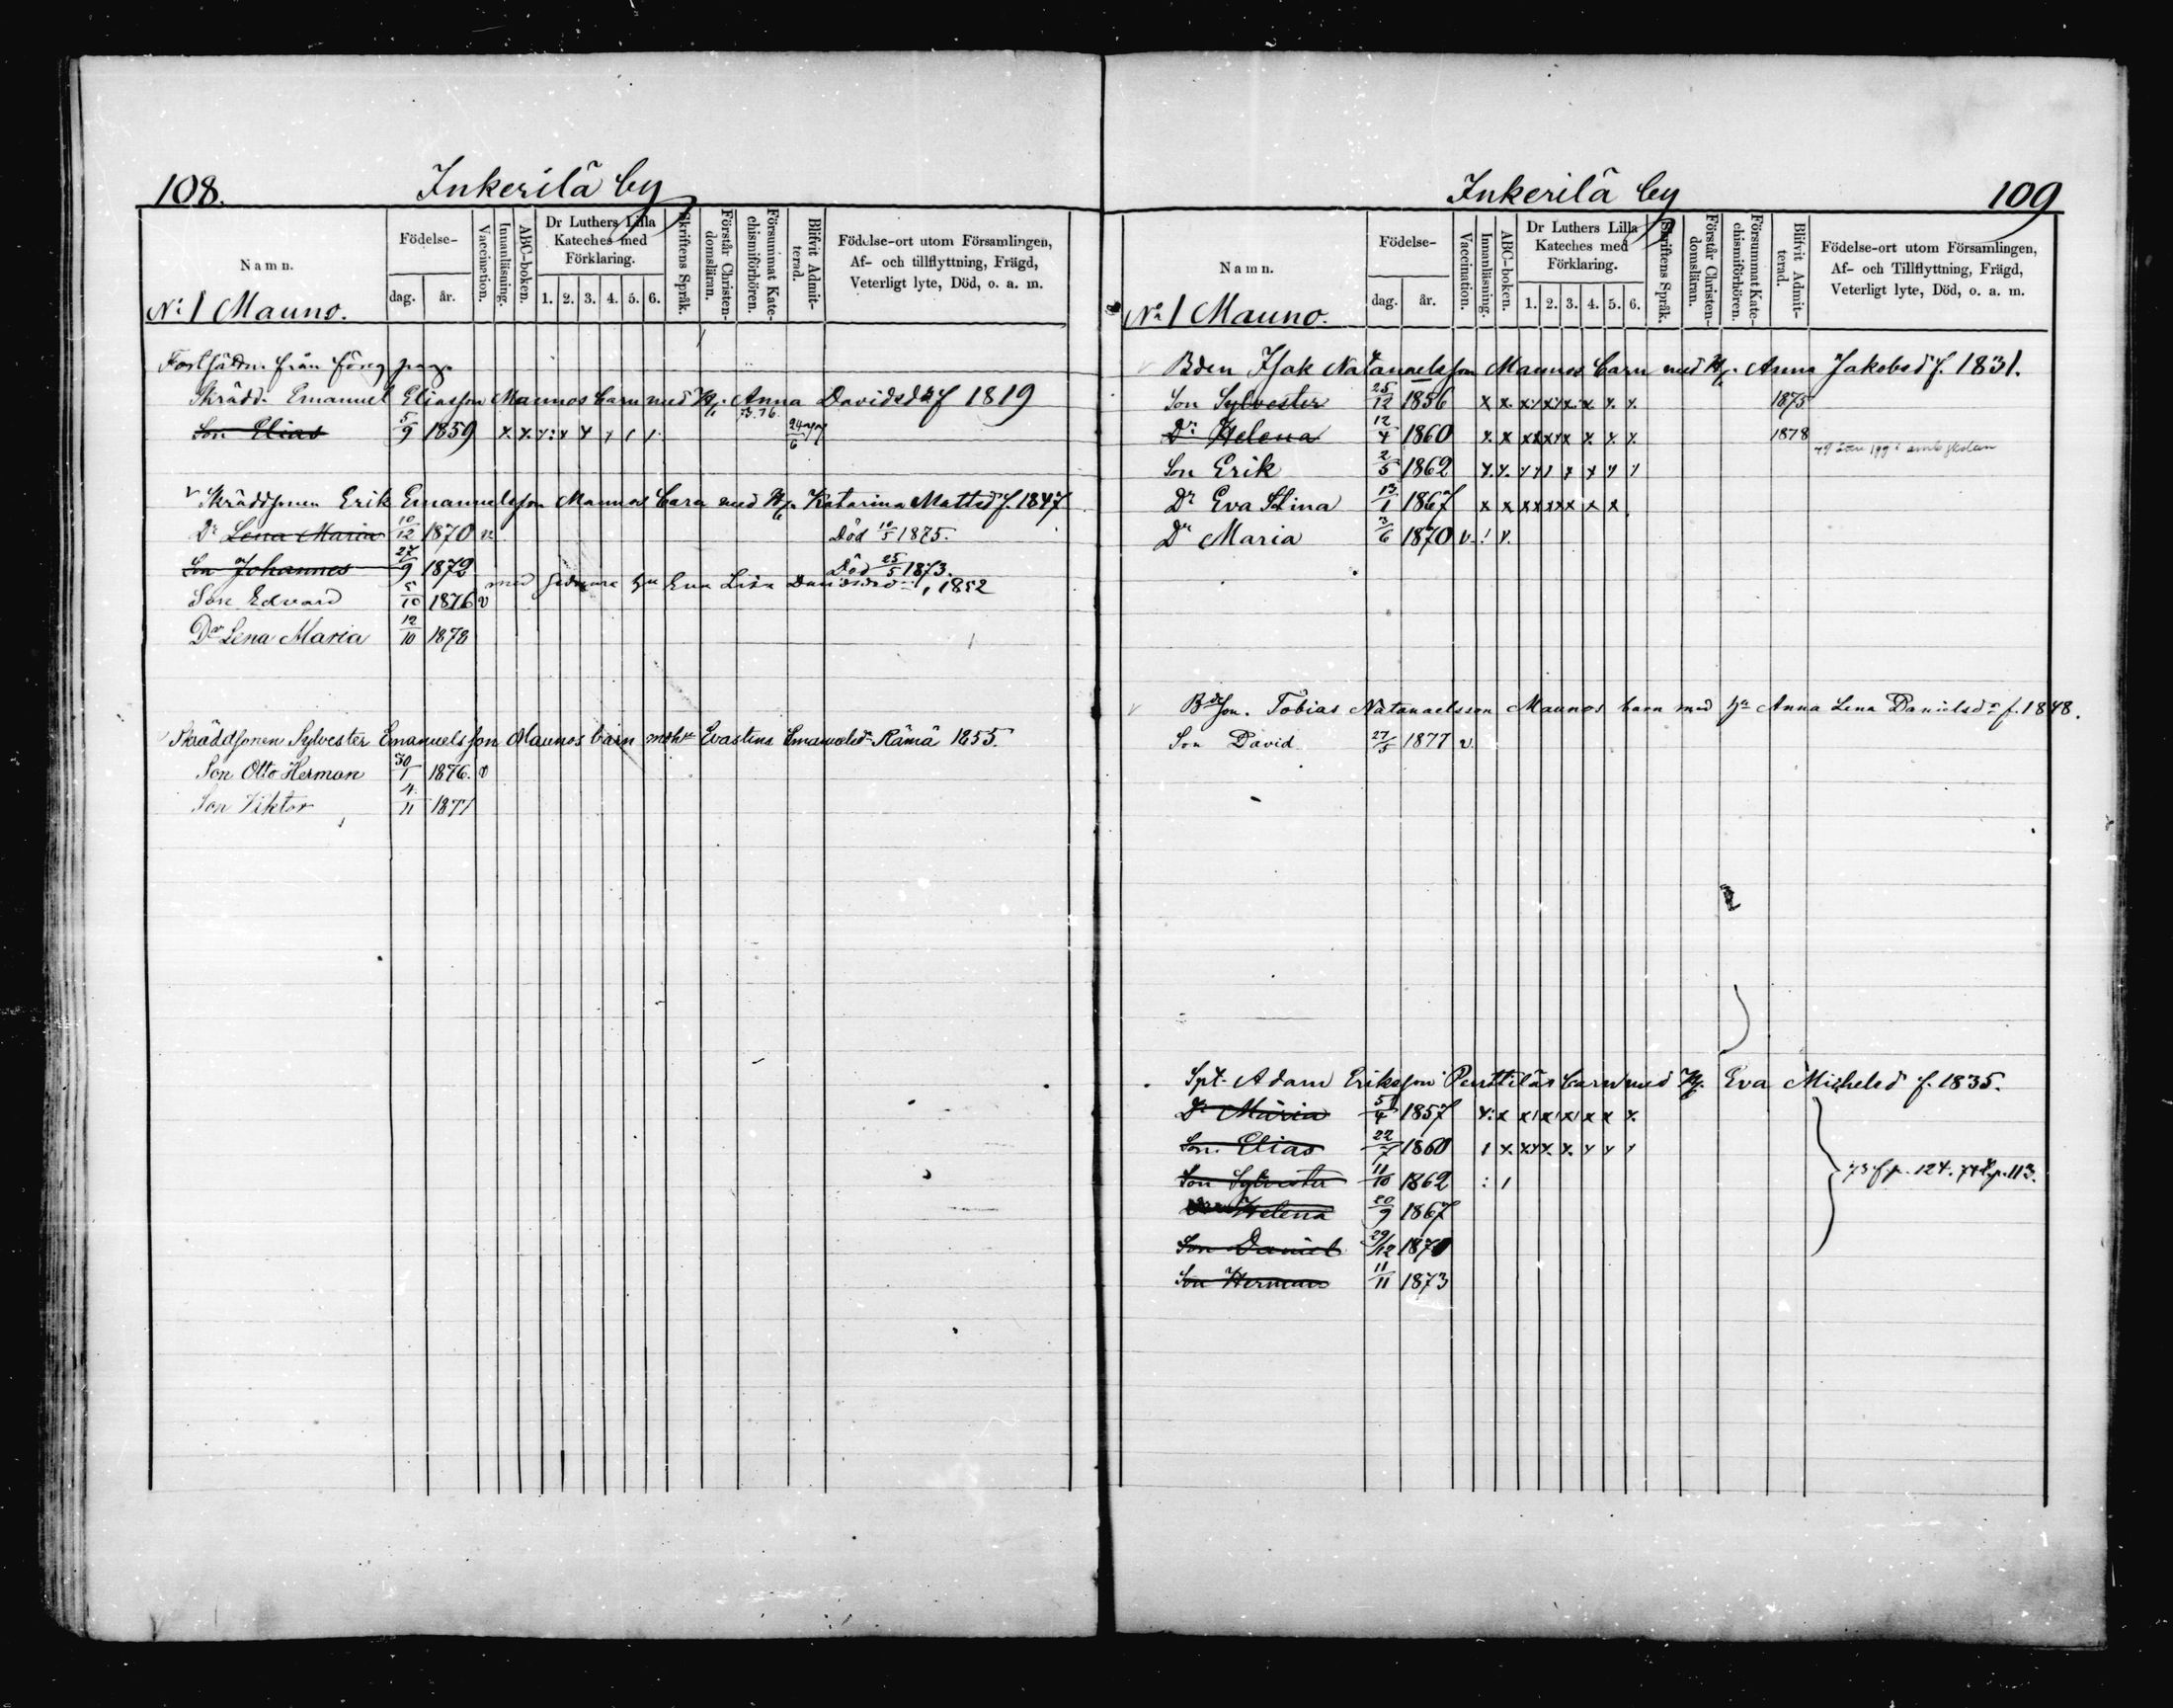 108.
Inkerilä by
Namn.
Födelse-
dag.
år.
Vaccination.
Innanläsning.
ABC-boken.
Dr Luthers Lilla Kateches med Förklaring.
1. 2. 3. 4. 5. 6.
Skriftens Språk.
Förstår Christendomsläran.
Försummat Katechismiförhören.
Blifvit Admitterad.
Födelse-ort utom Församlingen,
Af- och tillflyttning, Frägd,
Veterligt lyte, Död, o. a. m.
No 1 Mauno.
från föreg pag.
Skrädd. Emanuel Eliasson Maunos barn med H. Anna Davidsdr f 1819
Son Elias 5/9 1859 73. 76. 24/6 77
v Skräddsonen Erik Emanuelsson Maunos barn med H. Katarina Mattsd f. 1847
Dr Lena Maria 10/12 1870 v Död 10/5 1875.
Son Johannes 27/9 1872 Död 25/5 1873.
med Eva Lisa 1852
Son Edvard 5/10 1876 v
Dr Lena Maria 12/10 1878
Skräddsonen Sylvester Emanuelsson Maunos barn Evastina Emanuelsdr Rämä 1855.
Son Otto Herman 30/1 1876. v
Son Viktor 4/11 1877
Inkerilä by
109
Namn.
Födelse-
dag.
år.
Vaccination.
Innanläsning.
ABC-boken.
Dr Luthers Lilla Kateches med Förklaring.
1. 2. 3. 4. 5. 6.
Skriftens Språk.
Förstår Christendomsläran.
Försummat Katechismiförhören.
Blifvit Admitterad.
Födelse-ort utom Församlingen,
Af- och Tillflyttning, Frägd,
Veterligt lyte, Död, o. a. m.
No 1 Mauno.
v Bden Isak Natanaelsson Maunos barn med H. Anna Jakobsd f. 1831.
Son Sylvester 25/12 1856 x x x x x x x x 1875
Dr Helena 12/4 1860 x x x x x x x x 1878
Son Erik 2/5 1862
Dr Eva Stina 13/1 1867 x x x x x x x x
Dr Maria 3/6 1870 v
v Bdson. Tobias Natanaelsson Maunos barn med Hu Anna Lena Danielsdr f. 1848.
Son David 27/5 1877 v.
Spt. Adam Eriksson Penttiläs barn med H. Eva Michelsd f. 1835.
Dr Maria 5/4 1857
Son Elias 22/7 1860
Son Sylvester 11/10 1862
Helena 20/9 1867
73 f p. 124. p. 113.
Son Daniel 29/12 1870
Son Herman 11/11 1873